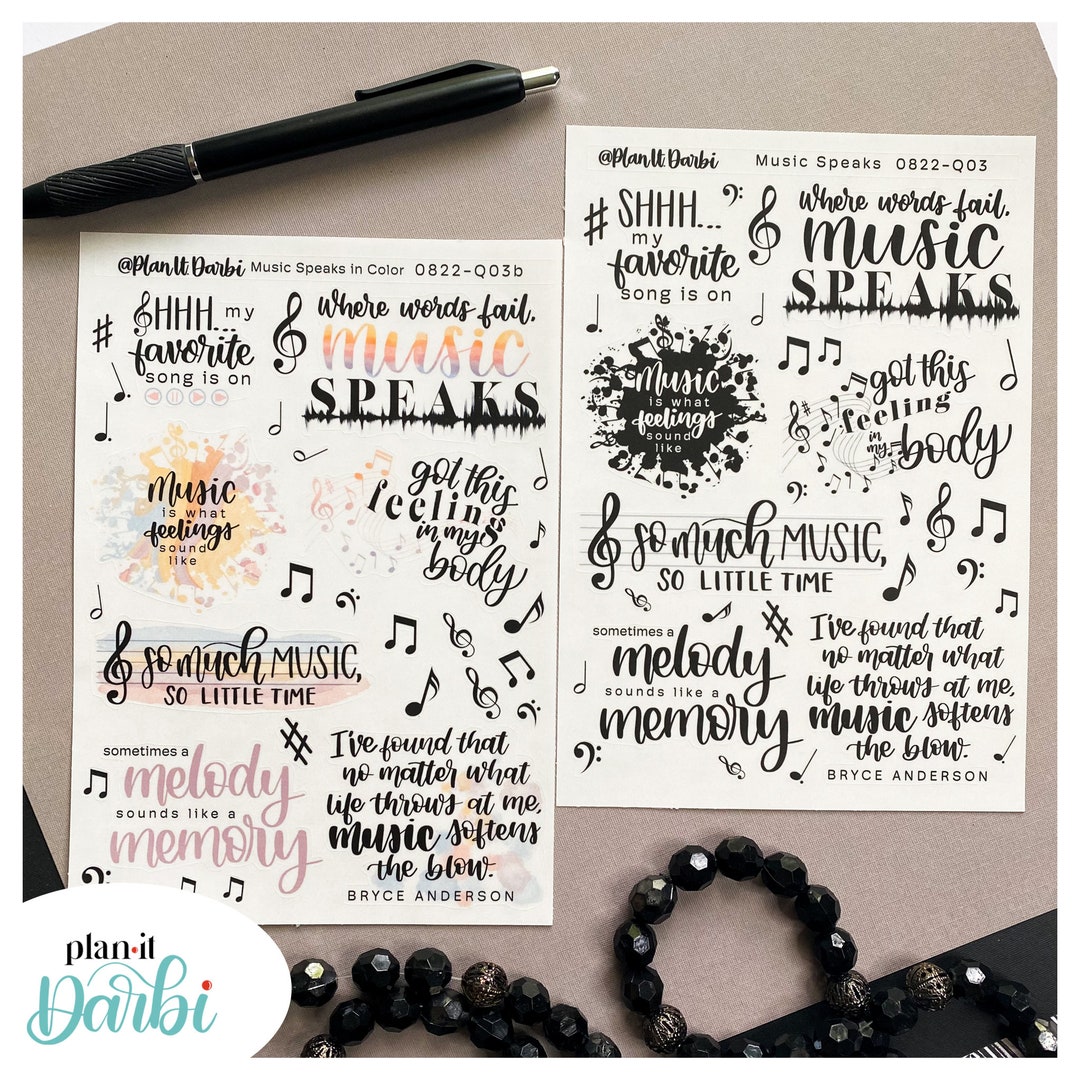 @Plan It Darbi Music Speaks in Color 0822-Q03b
SHHH... my
favorite
song is on
where words fail,
music
SPEAKS
Music
is what
feelings
sound
like
got this
feeling
in my
body
so much MUSIC,
SO LITTLE TIME
sometimes a
melody
sounds like a
memory
I've found that
no matter what
life throws at me,
music softens
the blow.
BRYCE ANDERSON
@Plan It Darbi Music Speaks 0822-Q03
SHHH...
my
favorite
song is on
where words fail,
music
SPEAKS
Music
is what
feelings
sound
like
got this
feeling
in my
body
so much MUSIC,
SO LITTLE TIME
sometimes a
melody
sounds like a
memory
I've found that
no matter what
life throws at me,
music softens
the blow.
BRYCE ANDERSON
plan·it
Darbi